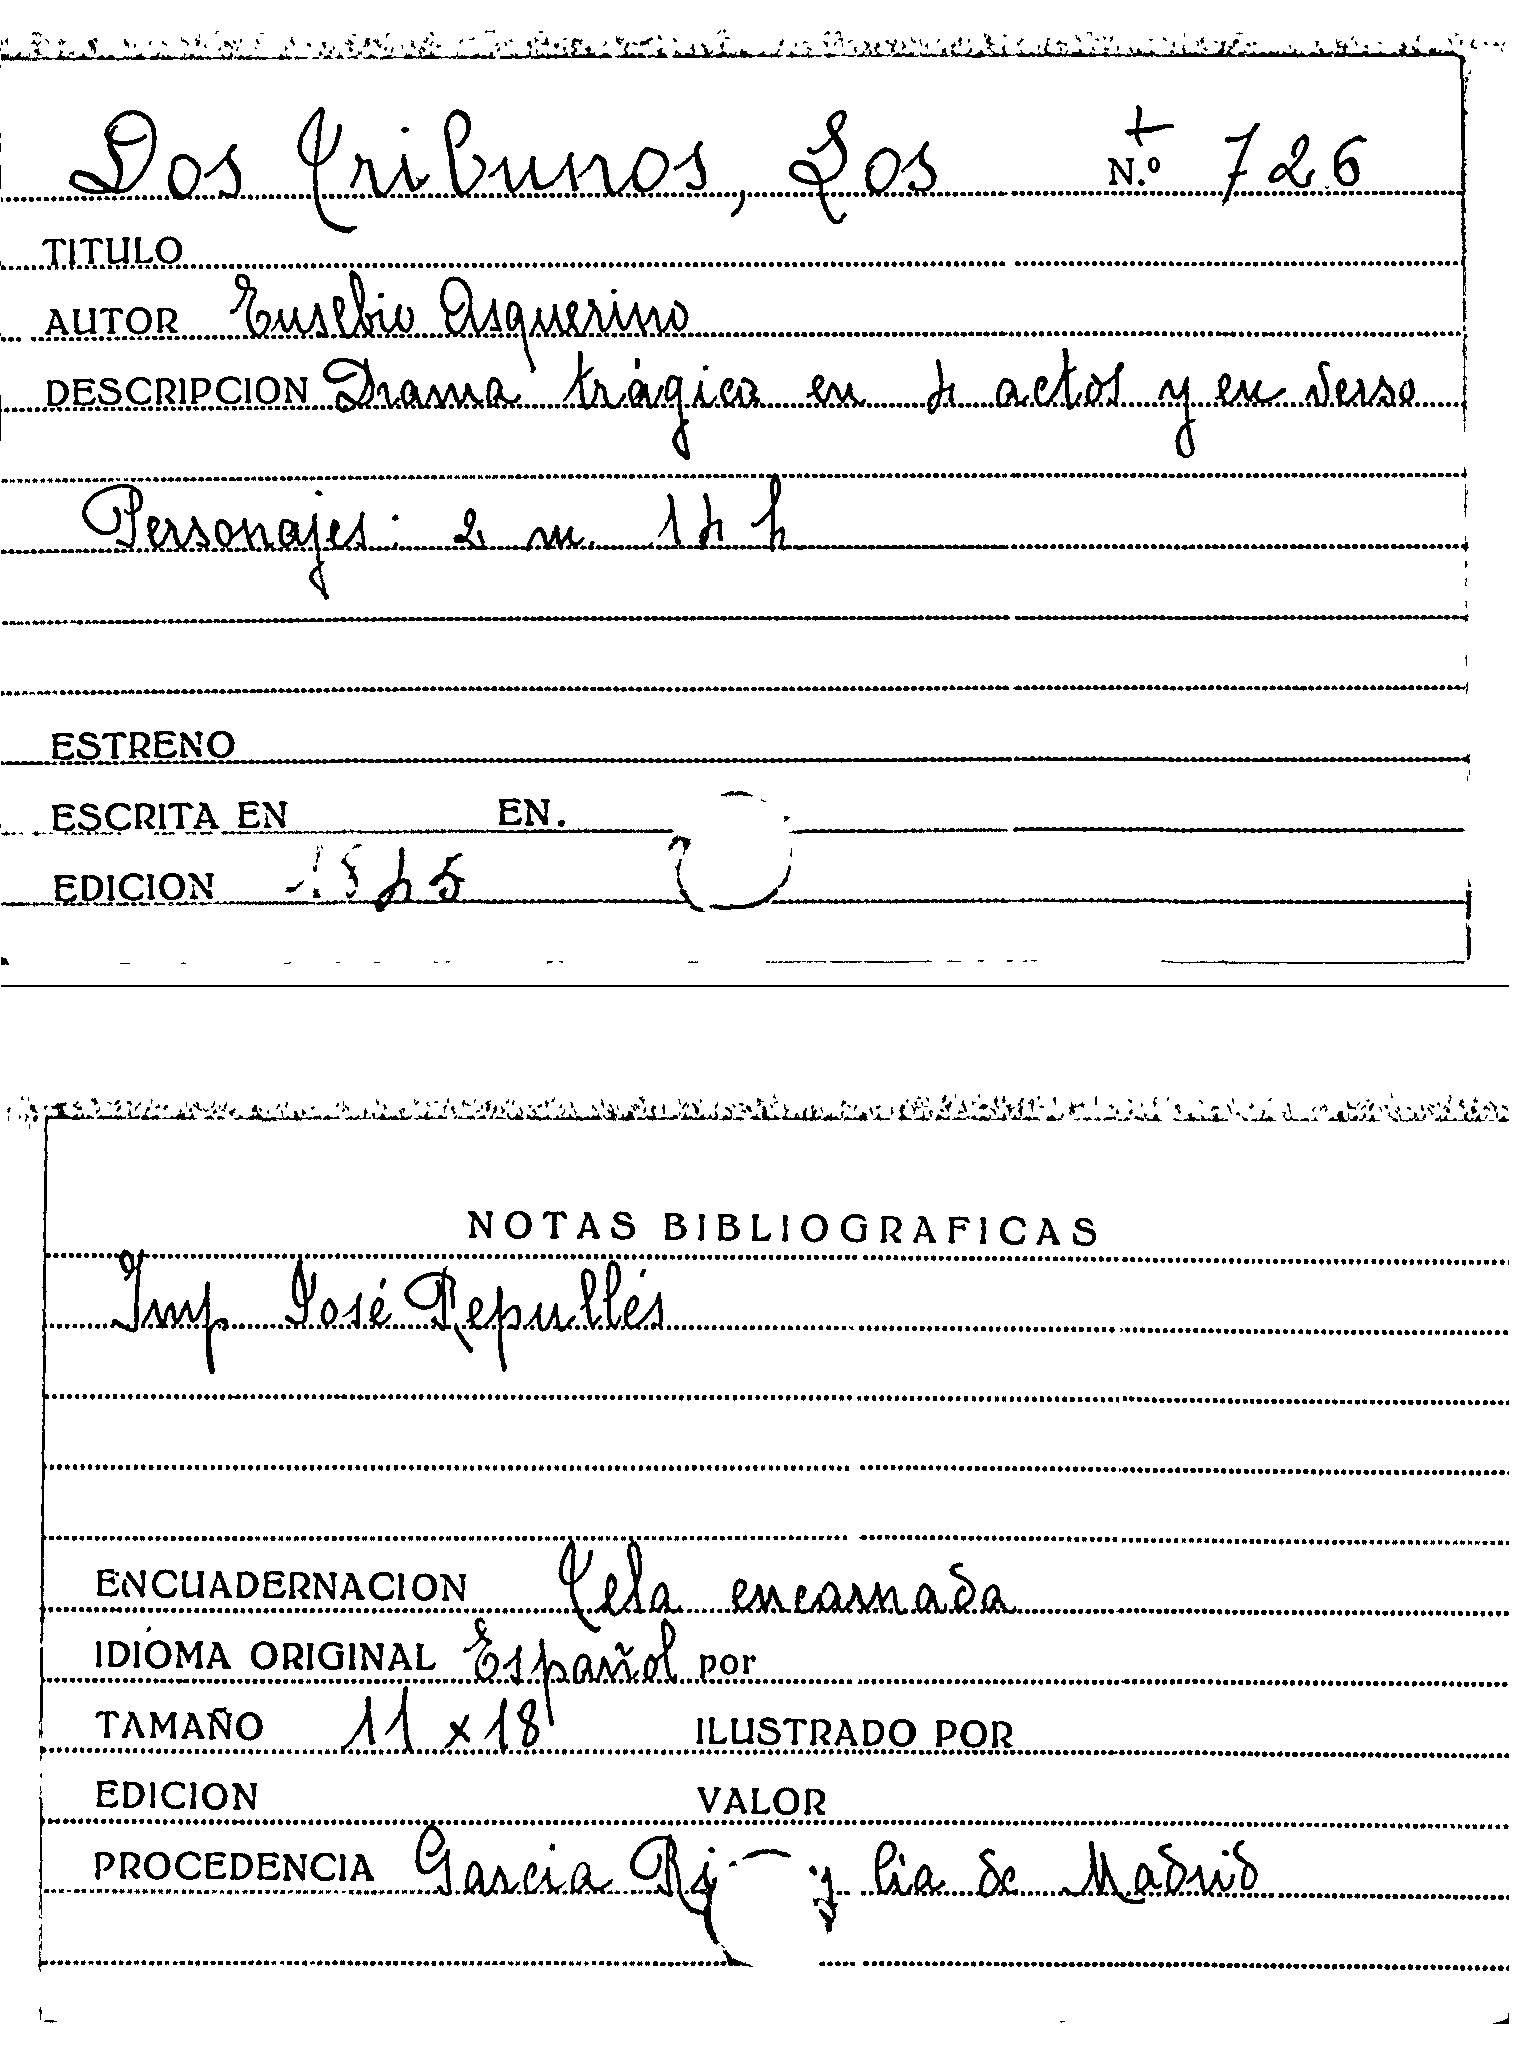 Dos Tribunos, Los + N.º 726
TITULO
AUTOR Eusebio Asquerino
DESCRIPCION Drama trágico en 4 actos y en verso
Personajes: 2 m. 14 h
ESTRENO
ESCRITA EN EN.
EDICION 1845
NOTAS BIBLIOGRAFICAS
Imp José Repullés
ENCUADERNACION Tela encarnada
IDIOMA ORIGINAL Español por
TAMAÑO 11 x 18 ILUSTRADO POR
EDICION VALOR
PROCEDENCIA Garcia y Cia de Madrid